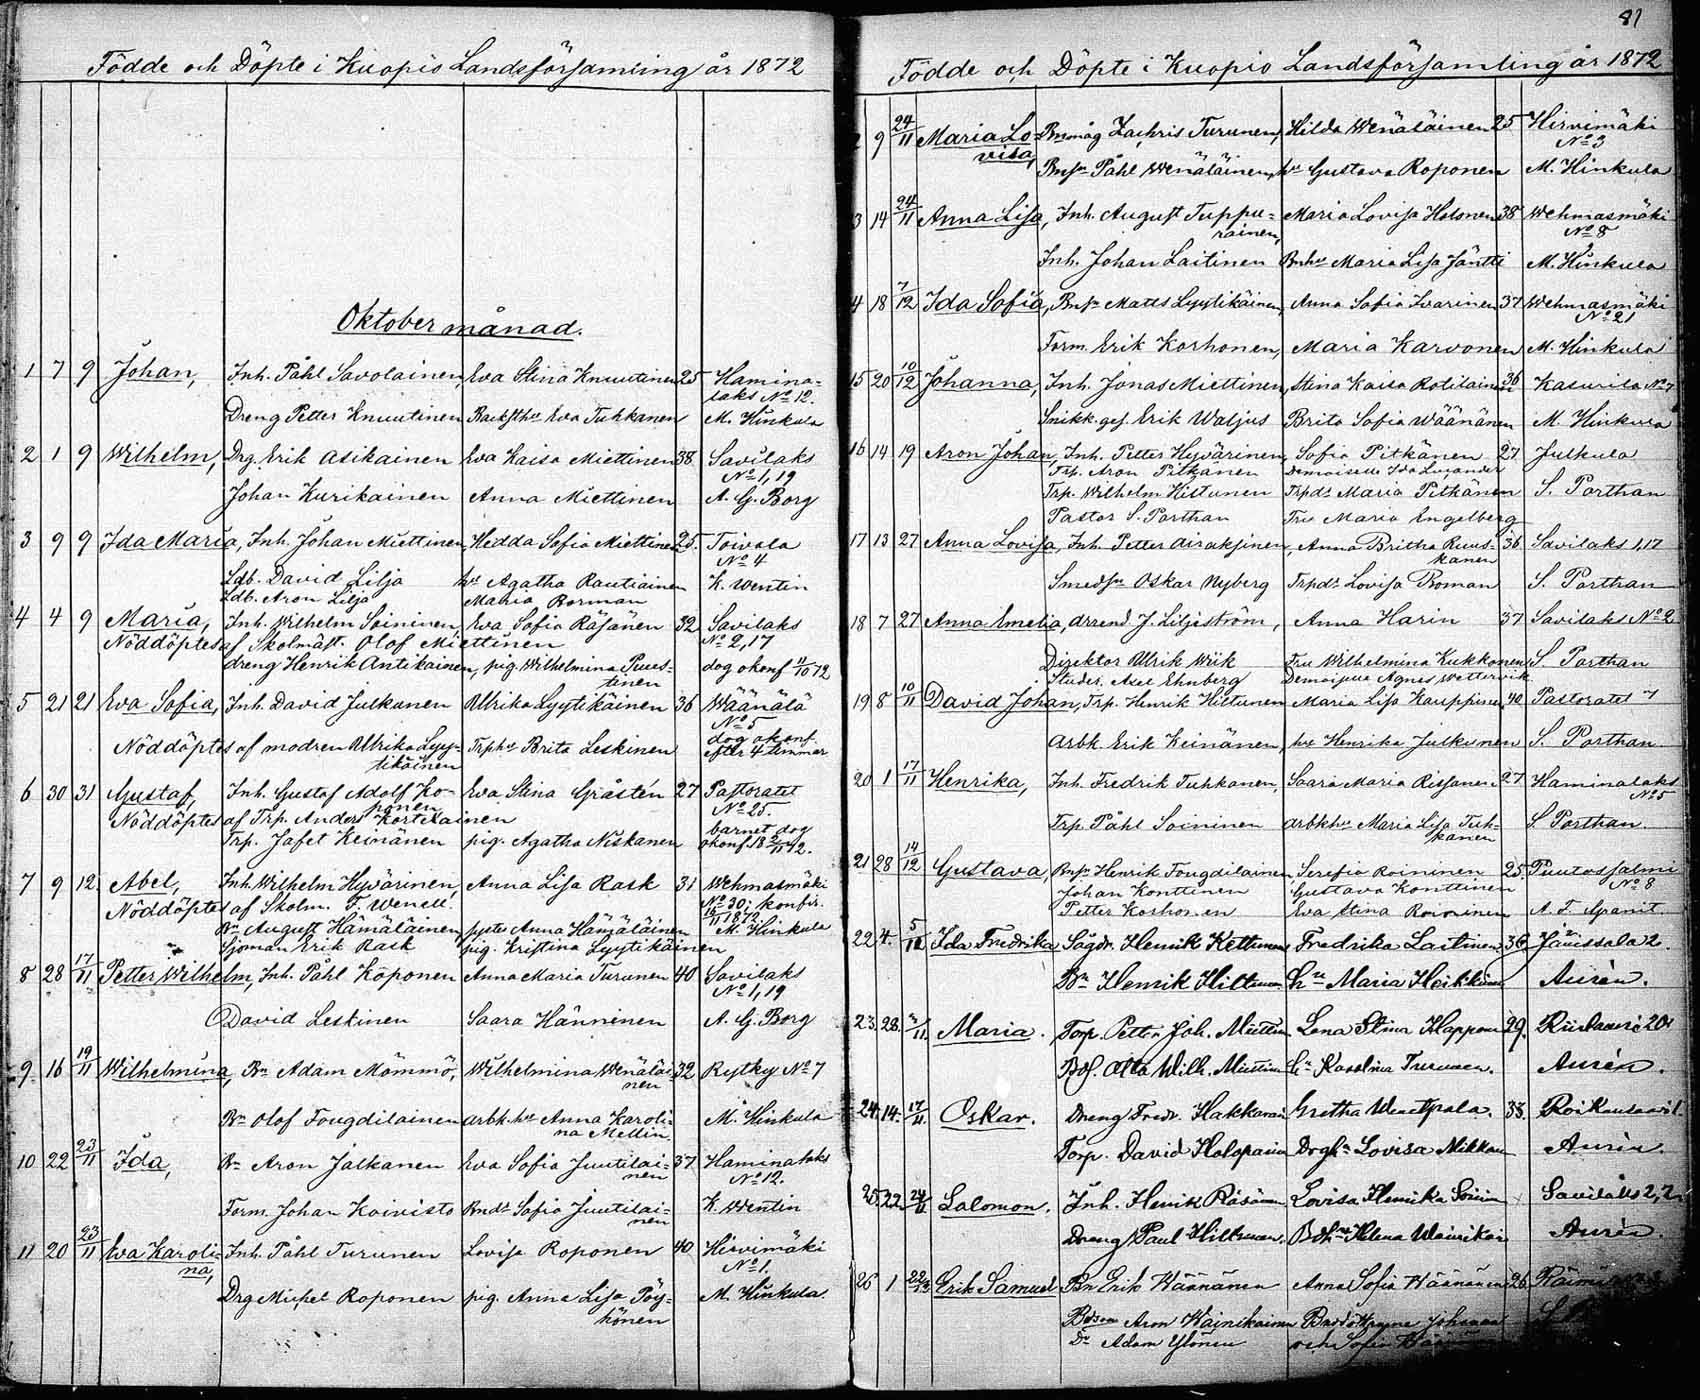 Födde och Döpte i Kuopio Landsförsamling år 1872
Oktober månad.
1 7 9 Johan, Inh. Påhl Savolainen, Eva Stina Knuutinen 25 Hamina-
laks No 12.
Dreng Petter Knuutinen Eva Tuhkanen M. Hinkula
2 1 9 Wilhelm, Drg. Erik Asikainen Eva Kaisa Miettinen 38. Savilaks
No 1, 19
Johan Kurikainen Anna Miettinen A. G. Borg
3 9 9 Ida Maria, Inh. Johan Miettinen, Hedda Sofia Miettinen 25. Toivala
No 4
Ldb. David Lilja hu Agatha Rautiainen K. Wentin
Ldb. Aron Lilja Maria Borman
4 4 9 Maria, Inh. Wilhelm Soininen Eva Sofia Räsänen 32 Savilaks
Nöddöptes af Skolmäst. Olof Miettinen No 2, 17
dreng Henrik Antikainen, pig. Wilhelmina Puus- dog okonf 11/10 72
tinen
5 21 21 Eva Sofia, Inh. David Julkunen Ulrika Lyytikäinen 36 Wäänälä
No 5
Nöddöptes af modren Ulrika Lyy- Trphu Brita Leskinen dog okonf.
tikäinen efter 4 timmar
6 30 31 Gustaf, Inh. Gustaf Adolf Ko- Eva Stina Gråstén 27 Pastoratet
ponen No 25.
Nöddöptes af Trp. Anders Kortekainen
Trp. Jafet Keinänen pig. Agatha Niskanen barnet dog
okonf. 18 2/11 72.
7 9 12 Abel, Inh. Wilhelm Hyvärinen, Anna Lisa Rask 31 Wehmasmäki
Nöddöptes af Skolm. F. Wenell. No 30; konfir.
Bn August Hämäläinen, syster Anna Hämäläinen 1872. M. Hinkula
Sjöman Erik Rask pig. Kristina Lyytikäinen
8 28 17/11 Petter Wilhelm, Inh. Påhl Koponen Anna Maria Turunen 40 Savilaks
No 1, 19
David Leskinen Saara Hänninen A. G. Borg
9 16 19/11 Wilhelmina, Bn Adam Mömmö, Wilhelmina Wenäläi- 32 Rytky No 7
nen
Bn Olof Fougdilainen arbk. hu Anna Karoli- M. Hinkula
na Mellin.
10 22 23/11 Ida, Bn Aron Jalkanen Eva Sofia Juutilai- 37 Haminalaks
nen No 12.
Form. Johan Koivisto Bndr Sofia Juutilai- K. Wentin
nen
11 20 23/11 Eva Karoli- Inh. Påhl Turunen Lovisa Roponen 40 Hirvimäki
na, No 1.
Drg Michel Roponen pig. Anna Lisa Pöy- M. Hinkula
hönen
81
Födde och Döpte i Kuopio Landsförsamling år 1872
2 9 24/11 Maria Lo- Bnmåg Zachris Turunen, Hilda Wenäläinen 25 Hirvimäki
visa, No 3
Bnsn Påhl Wenäläinen, hu Gustava Roponen M. Hinkula
3 14 24/11 Anna Lisa, Inh. August Tuppu- Maria Lovisa Holonen 38 Wehmasmäki
rainen, No 8
Inh. Johan Laitinen Bnhu Maria Lisa Jäntti M. Hinkula
4 18 7/12 Ida Sofia, Bnsn Matts Lyytikäinen, Anna Sofia Ivarinen 37 Wehmasmäki
No 21
Form. Erik Korhonen, Maria Karvonen M. Hinkula
15 20 10/12 Johanna, Inh. Jonas Miettinen, Stina Kaisa Rotilainen 36 Kasurila No 7
Snikk. ges. Erik Waljus Brita Sofia Wäänänen M. Hinkula
16 14 19 Aron Johan, Inh. Petter Hyvärinen, Sofia Pitkänen 27 Julkula
Trp. Aron Pitkänen Demoiselle Ida
Trp. Wilhelm Hiltunen Trpdr Maria Pitkänen S. Porthan
Pastor S. Porthan Fru Maria Engelberg
17 13 27 Anna Lovisa, Inh. Petter Airaksinen, Anna Britha Ruus- 36 Savilaks 1, 17
kanen
Smedsn Oskar Nyberg Trpdr Lovisa Roman S. Porthan
18 7 27 Anna Amelia, drarend J. Liljeström, Anna Harin 37 Savilaks No 2
Direktor Ulrik Wiik Fru Wilhelmina Kukkonen S. Porthan
Studer. Axel Ehnberg Demoiselle Agnes Wettervik
19 8 10/11 David Johan, Trp. Henrik Hiltunen Maria Lisa Kauppinen 40 Pastoratet 7
Arbk. Erik Keinänen, hu Henrika Julkunen S. Porthan
20 1 17/11 Henrika, Inh. Fredrik Tuhkanen, Saara Maria Rissanen 27 Haminalaks
No 5
Trp. Påhl Soininen arbkhu Maria Lisa Tuh- S. Porthan.
kanen
21 28 14/12 Gustava, Bnsn Henrik Fougdilainen Serefia Roininen 25. Puutossalmi
Johan Konttinen Gustava Konttinen No 8
Petter Korhonen Eva Stina Roininen A. F. Granit.
22 4. Ida Fredrika Henrik Kettunen Fredrika Laitinen 36. Jänissalo 2.
Bn Henrik Hiltunen hu Maria Heikkinen Aurén.
23. 28. Maria. Torp. Petter Joh. Miettinen Lena Stina Happonen 29. 20
Otto Wilh. Miettinen hu Karolina Turunen. Aurén.
24. 14. 17/11 Oskar. Dreng Fredr. Hakkarainen Gretha 38.
Torp. David Holopainen Lovisa Aurén.
25. 22. Salomon. Inh. Henrik Räsänen Lovisa Henrika Soininen Savilaks 2,
Dreng Paul Hiltunen. Helena Wainikainen Aurén.
26 1 Erik Samuel Bn Erik Wäänänen Anna Sofia Wäänänen 26.
Aron Wainikainen Johanna
Dr Adam Ylönen och Sofia